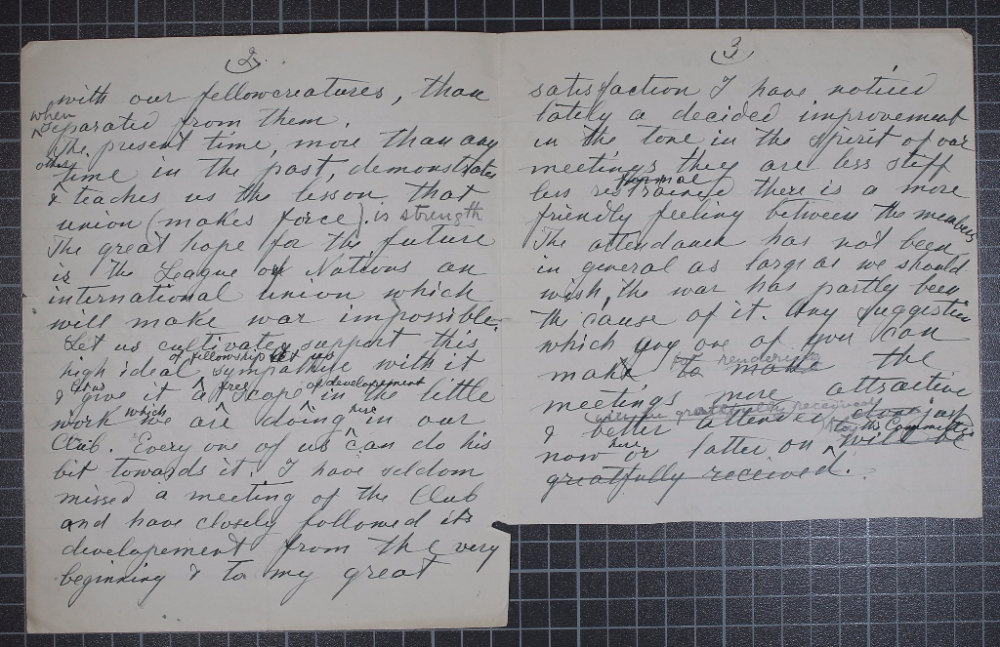 2.
with our fellowcreatures, than
when
separated from them.
The present time, more than any
other
time in the past, demonstrates
& teaches us the lesson that
union (makes force). is strength
The great hope for the future
is the League of Nations an
international union which
will make war impossible.
Let us cultivate, support this
of fellowship let us
high ideal sympathise with it
let us free of developement
& give it a scope in the little
which here
work we are doing in our
Club. Every one of us can do his
bit towards it. I have seldom
missed a meeting of the Club
and have closely followed its
developement from the very
beginning & to my great
3
satisfaction I have noticed
lately a decided improvement
in the tone in the spirit of our
meetings they are less stiff
formal
less restrained there is a more
friendly feeling between the members
The attendance has not been
in general as large as we should
wish, the war has partly been
the cause of it. Any suggestion
which any one of you can
to rendering
make to make the
meetings more attractive
will be greatfully received
& better attended either just
by the Committee
here
now or latter on will be
greatfully received.